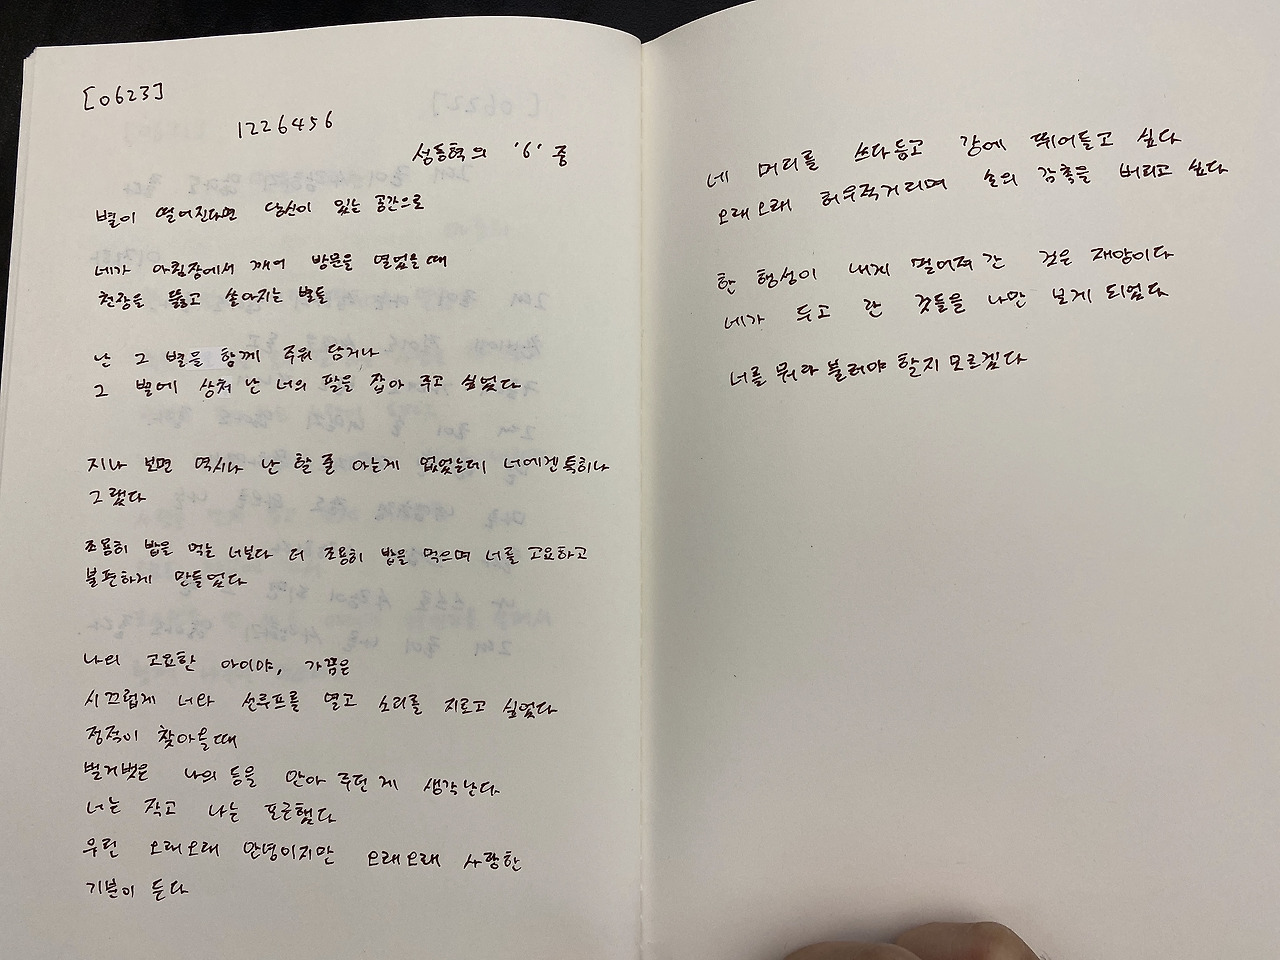 [0623]
1226456
성동혁의 '6' 중
별이 떨어진다면 당신이 있는 공간으로
네가 아침잠에서 깨어 방문을 열었을 때
천장을 뚫고 쏟아지는 별들
난 그 별을 함께 주워 담거나
그 별에 상처 난 너의 팔을 잡아 주고 싶었다
지나 보면 역시나 난 할 줄 아는게 없었는데 너에겐 특히나
그랬다
조용히 밥을 먹는 너보다 더 조용히 밥을 먹으며 너를 고요하고
불편하게 만들었다
나의 고요한 아이야, 가끔은
시끄럽게 너와 선루프를 열고 소리를 지르고 싶었다
정적이 찾아올 때
벌거벗은 나의 등을 안아 주던 게 생각난다
너는 작고 나는 포근했다
우린 오래오래 안녕이지만 오래오래 사랑한
기분이 든다
네 머리를 쓰다듬고 강에 뛰어들고 싶다
오래오래 허우적거리며 손의 감촉을 버리고 싶다
한 행성이 내게 멀어져 간 것은 재앙이다
네가 두고 간 것들을 나만 보게 되었다
너를 뭐라 불러야 할지 모르겠다